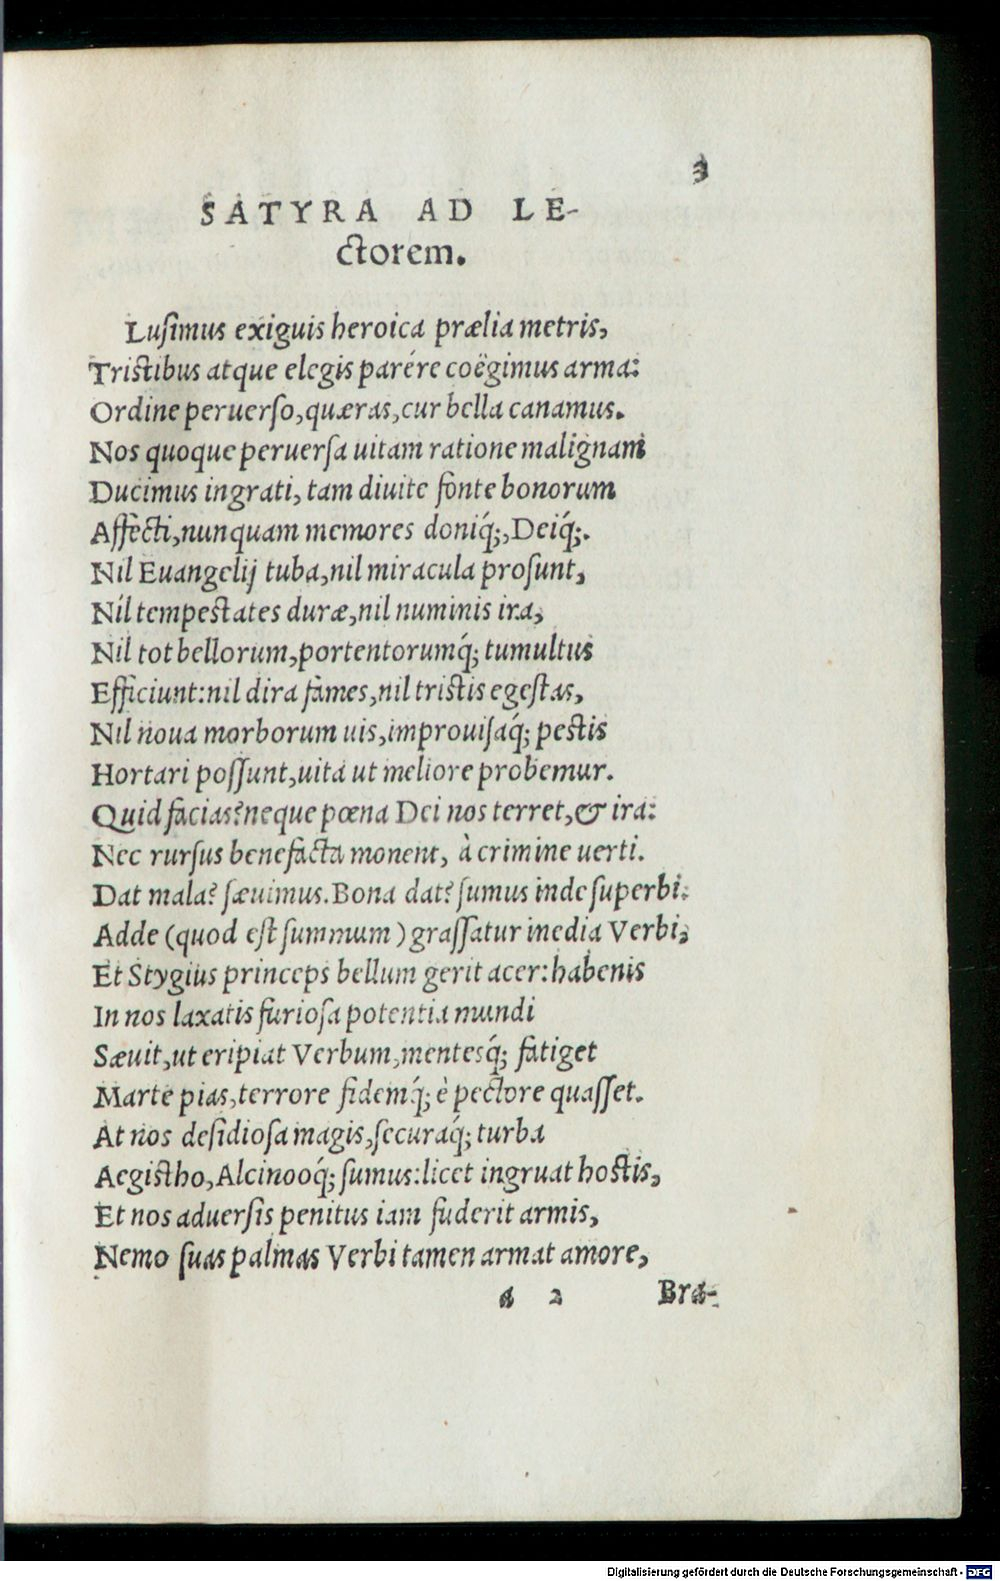 3
SATYRA AD LE-
ctorem.
Lusimus exiguis heroica prælia metris,
Tristibus atque elegis parére coëgimus arma:
Ordine peruerso, quæras, cur bella canamus.
Nos quoque peruersa uitam ratione malignam
Ducimus ingrati, tam diuite fonte bonorum
Affecti, nunquam memores doniq́;, Deiq́;.
Nil Euangelij tuba, nil miracula prosunt,
Nil tempestates duræ, nil numinis ira,
Nil tot bellorum, portentorumq́; tumultus
Efficiunt: nil dira fames, nil tristis egestas,
Nil noua morborum uis, improuisaq́; pestis
Hortari possunt, uita ut meliore probemur.
Quid facias? neque pœna Dei nos terret, & ira:
Nec rursus benefacta monent, à crimine uerti.
Dat mala? sæuimus. Bona dat? sumus inde superbi.
Adde (quod est summum) grassatur inedia Verbi,
Et Stygius princeps bellum gerit acer: habenis
In nos laxatis furiosa potentia mundi
Sæuit, ut eripiat Verbum, mentesq́; fatiget
Marte pias, terrore fidemq́; è pectore quasset.
At nos desidiosa magis, securaq́; turba
Aegistho, Alcinooq́; sumus: licet ingruat hostis,
Et nos aduersis penitus iam fuderit armis,
Nemo suas palmas Verbi tamen armat amore,
a 2 Bra-
Digitalisierung gefördert durch die Deutsche Forschungsgemeinschaft - DFG